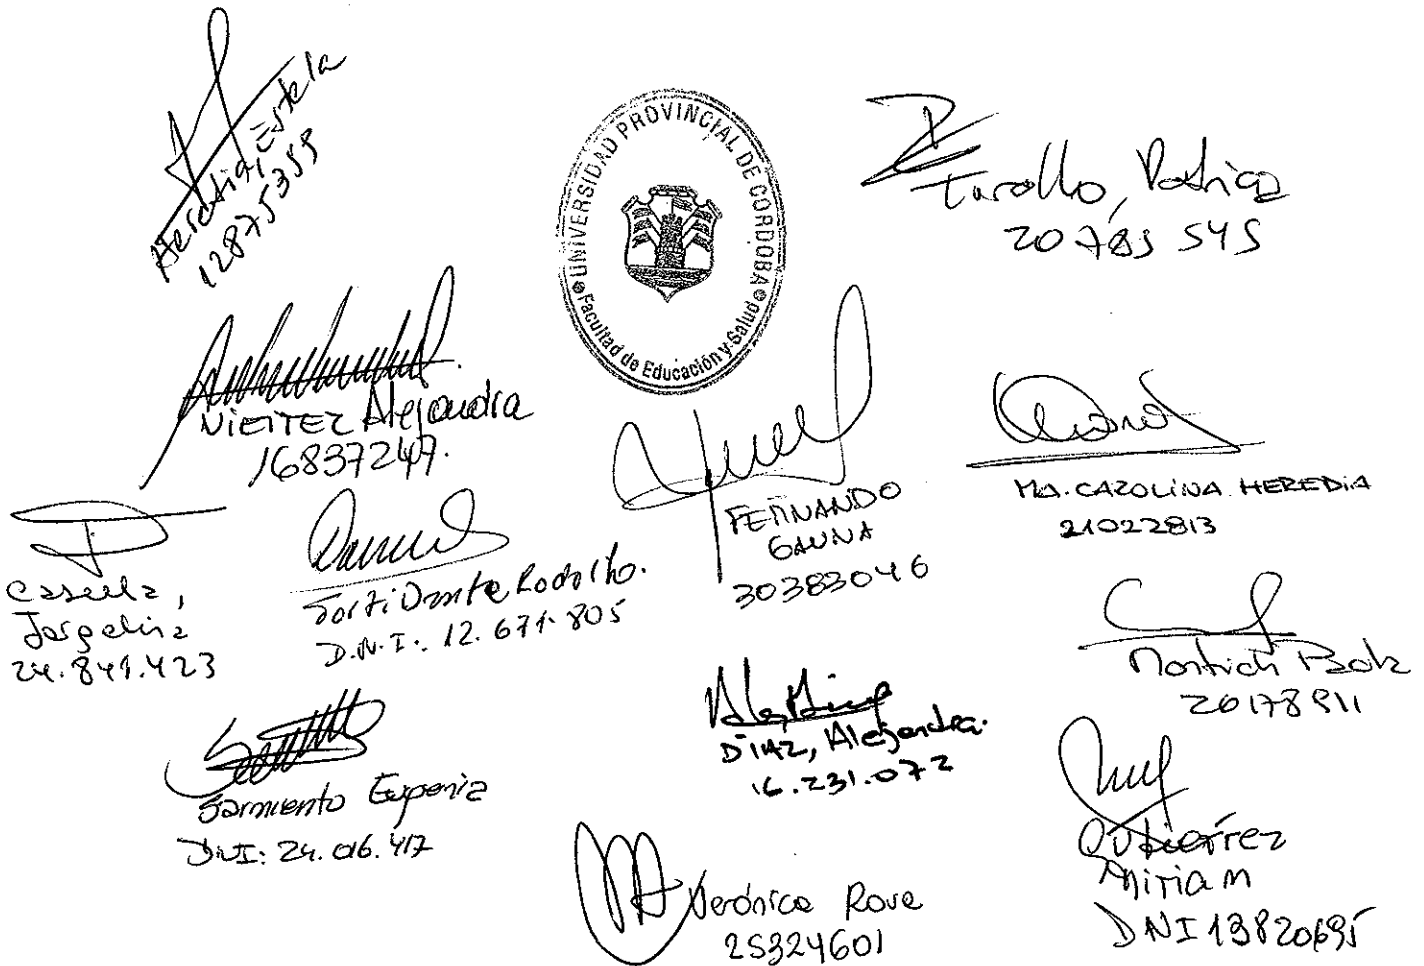 Heredia, Estela
12875359
UNIVERSIDAD PROVINCIAL DE CORDOBA
Facultad de Educación y Salud
Turollo, Patricia
20785 545
NIEITEZ Alejandra
16837247.
FERNANDO
GAUNA
30383046
MA. CAROLINA HEREDIA
21022813
Casella,
Jorgelina
24.841.423
Sorti Dante Rodolfo.
D.N.I.: 12.671.805
Montich Paola
20178911
DIAZ, Alejandra.
16.231.072
Sarmiento Eugenia
DNI: 24.016.417
Gutierrez
Miriam
DNI 13820695
Verónica Rove
25324601